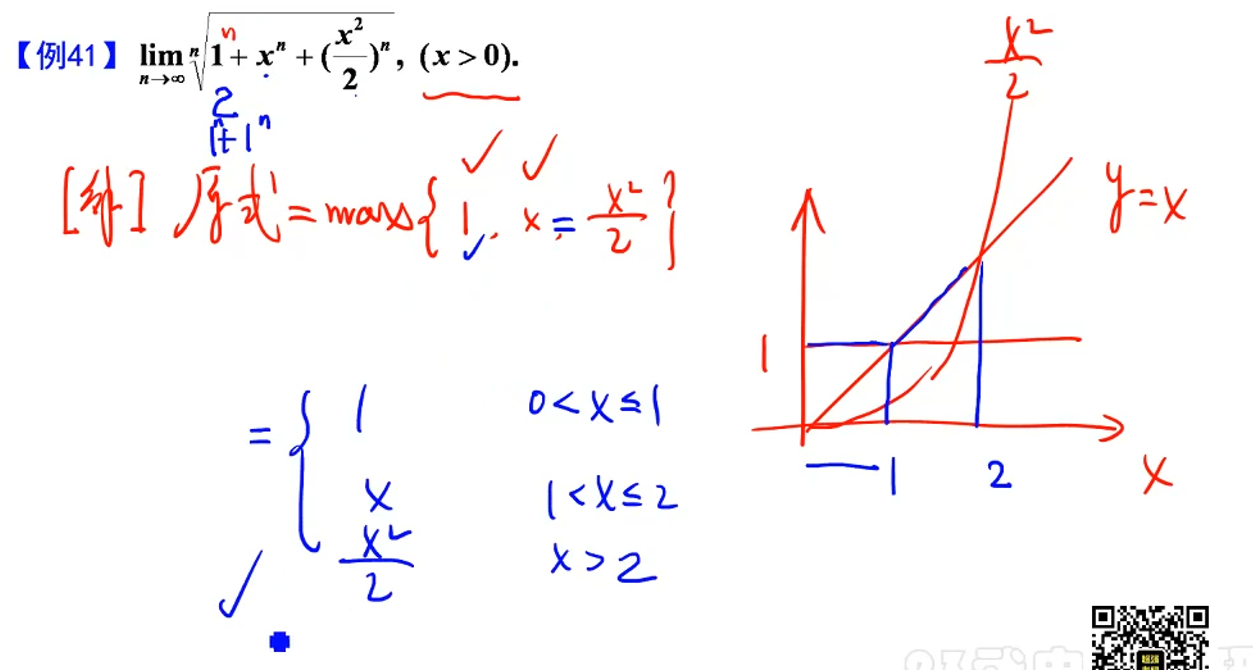 【例41】 lim n→∞ ⁿ√(1ⁿ + xⁿ + (x²/2)ⁿ), (x > 0).
2
1ⁿ+1ⁿ
[解] 原式 = max{ 1, x = x²/2 }
= { 1 0 < x ≤ 1
x 1 < x ≤ 2
x²/2 x > 2
x²/2
y = x
1
1 2 x